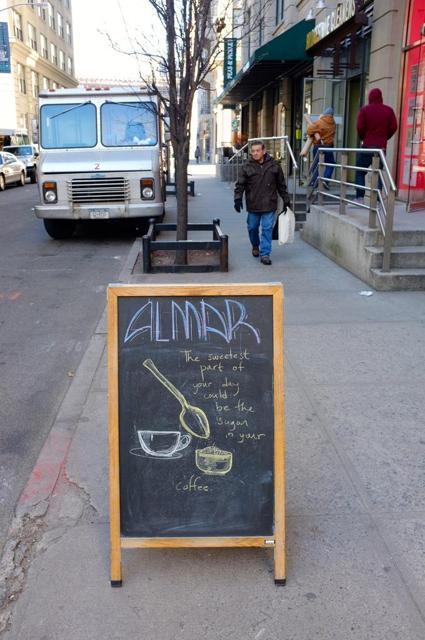 ALMAR
The sweetest
part of
your day
could
be the
sugar
in your
coffee.
2